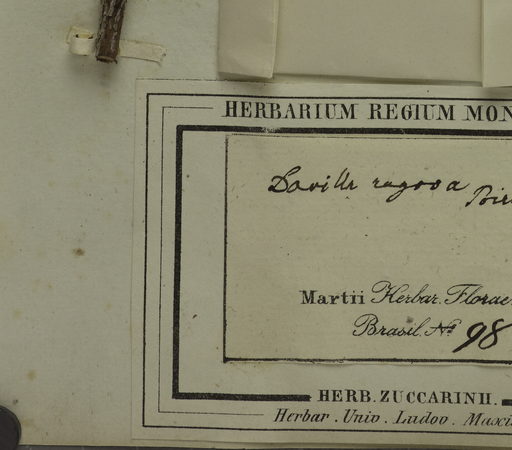 HERBARIUM REGIUM MON
Davilla rugosa Poir
Martii Herbar. Florae
Brasil. No 98
HERB. ZUCCARINII.
Herbar. Univ. Ludov. Maxi